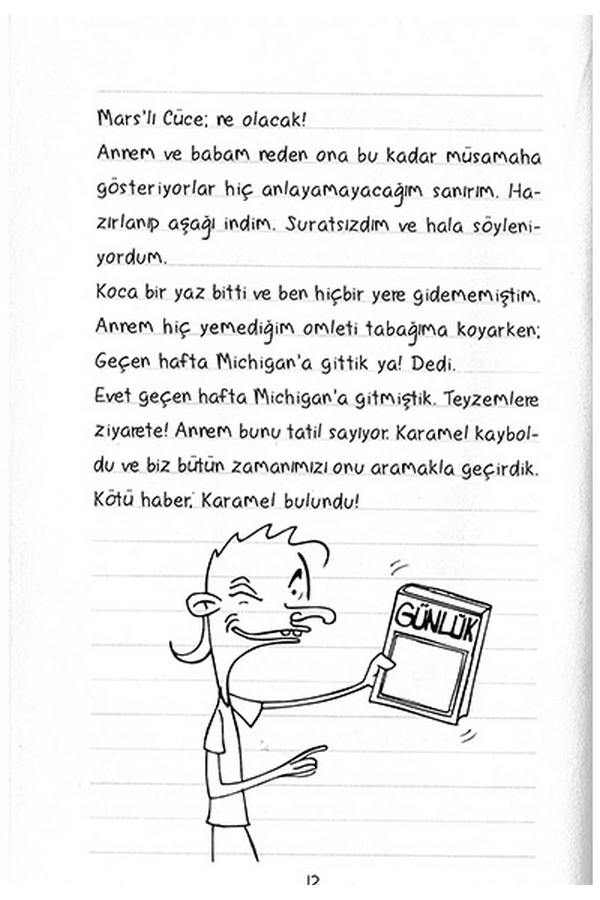 Mars'lı Cüce; ne olacak!
Annem ve babam neden ona bu kadar müsamaha
gösteriyorlar hiç anlayamayacağım sanırım. Ha-
zırlanıp aşağı indim. Suratsızdım ve hala söyleni-
yordum.
Koca bir yaz bitti ve ben hiçbir yere gidememiştim.
Annem hiç yemediğim omleti tabağıma koyarken;
Geçen hafta Michigan'a gittik ya! Dedi.
Evet geçen hafta Michigan'a gitmiştik. Teyzemlere
ziyarete! Annem bunu tatil sayıyor. Karamel kaybol-
du ve biz bütün zamanımızı onu aramakla geçirdik.
Kötü haber; Karamel bulundu!
GÜNLÜK
12